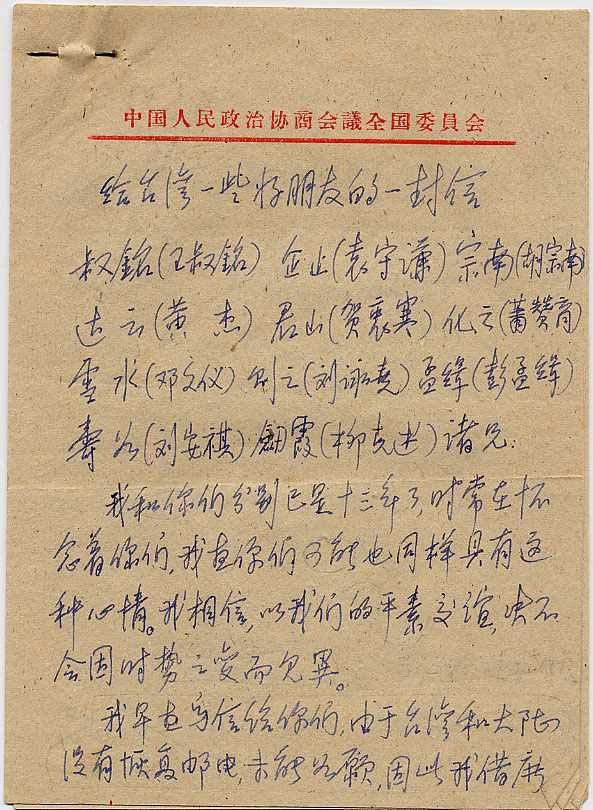 中国人民政治协商会議全国委員会
给台湾一些好朋友的一封信
叔銘(王叔銘) 企止(袁守谦) 宗南(胡宗南)
达云(黄 杰) 君山(贺衷寒) 化之(萧赞育)
雪冰(邓文仪) 则之(刘詠尧) 孟緝(彭孟緝)
寿如(刘安祺) 劍霞(柳克述) 诸兄:
我和你们分别已是十三年了,时常在怀
念着你们,我想你们可能也同样具有这
种心情。我相信,以我们的平素交谊,决不
会因时势之变而见異。
我早想写信给你们,由于台湾和大陆
没有恢复邮电,未能如愿,因此我借廣